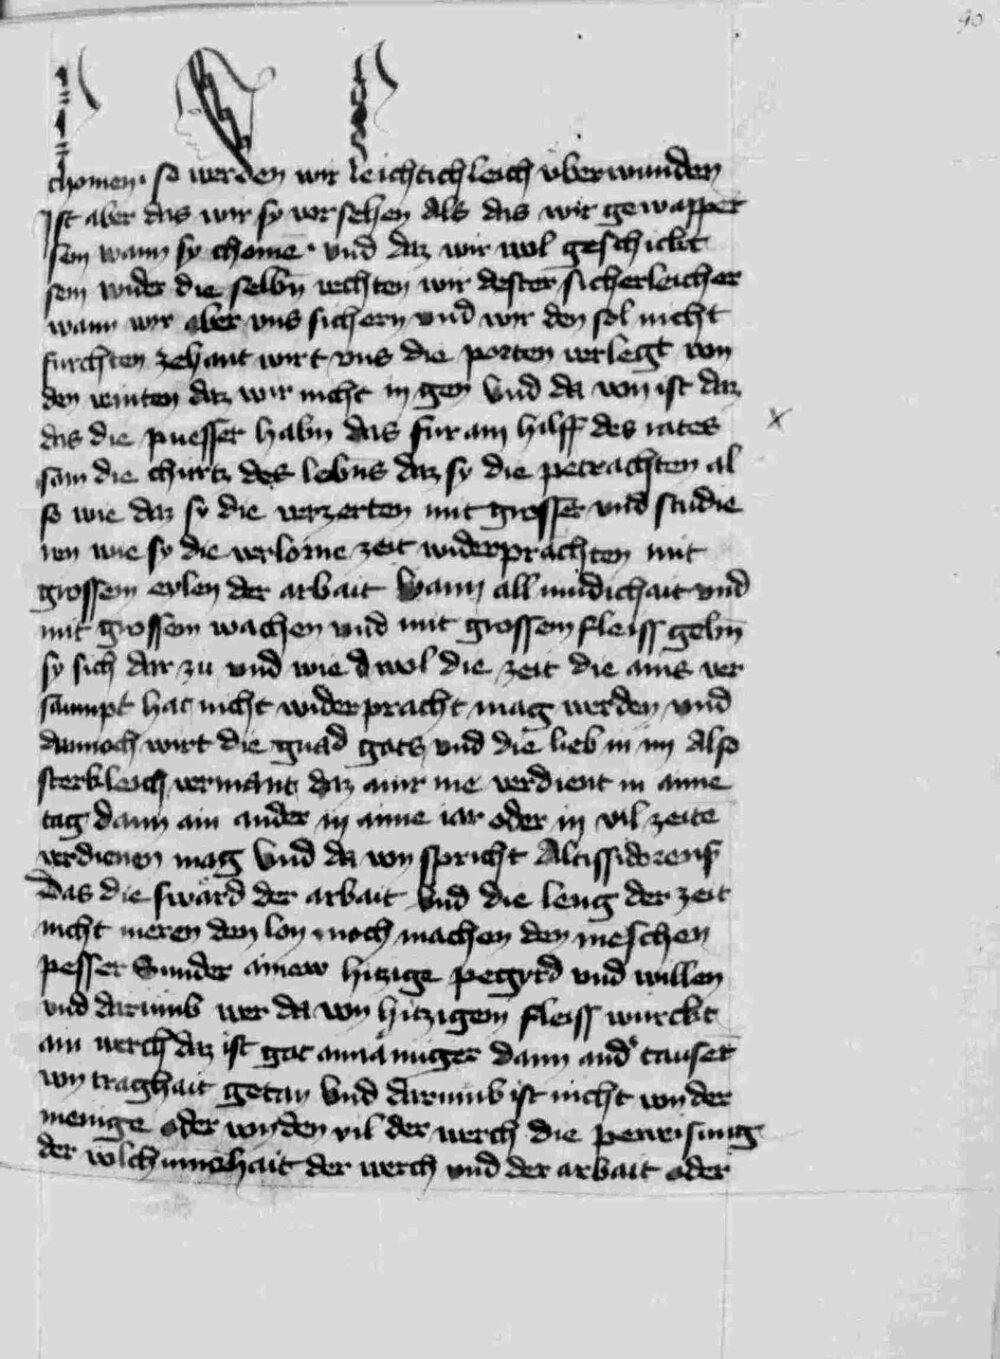 90
chomen · so werden wir leichtichleich vberwunden
Ist aber das wir sy vor sehen als das wir gewappet
sein wann sy chomē · vnd daz wir wol geschickt
sein wider die selbn̄ vechten wir dester sicherleicher
wann wir aber vns sichern vnd wir den sol nicht
furchten zehant wirt vns die porten verlegt von
den veinten daz wir nicht in gen Vnd da von ist daz
das die puesser habn̄ das fur ain hilff des rates
sam die churtz des lebn̄s daz sy die petrachten al
so wie daz sy die verzerten mit grosser vnd studie
ren wie sy die verlorne zeit widerprachten mit
grossem eylen der arbait Wann all mudichait vnd
mit grossem wachen vnd mit grossem fleiss gebn̄
sy sich dar zu vnd wie wol die zeit die ains ver
saumpt hat nicht widerpracht mag werden vnd
dannoch wirt die gnad gots vnd die lieb in im also
sterkleich vermant daz ainr me verdient in aime
tag dann ain ander in aime iar oder in vil zeite
verdienen mag Vnd da von spricht Altissidorens
Das die swärd der arbait Vnd die leng der zeit
nicht meren den lon noch machen den meschen
pesser Sunder ainew hitzige pegyrd vnd willen
vnd darumb wer da von hitzigem fleiss wurckt
ain werch daz ist got annämiger dann and tausēt
von traghait getan Vnd darumb ist nicht von der
menige oder von den vil der werch die peweisung
der volchumēhait der werch vnd der arbait oder